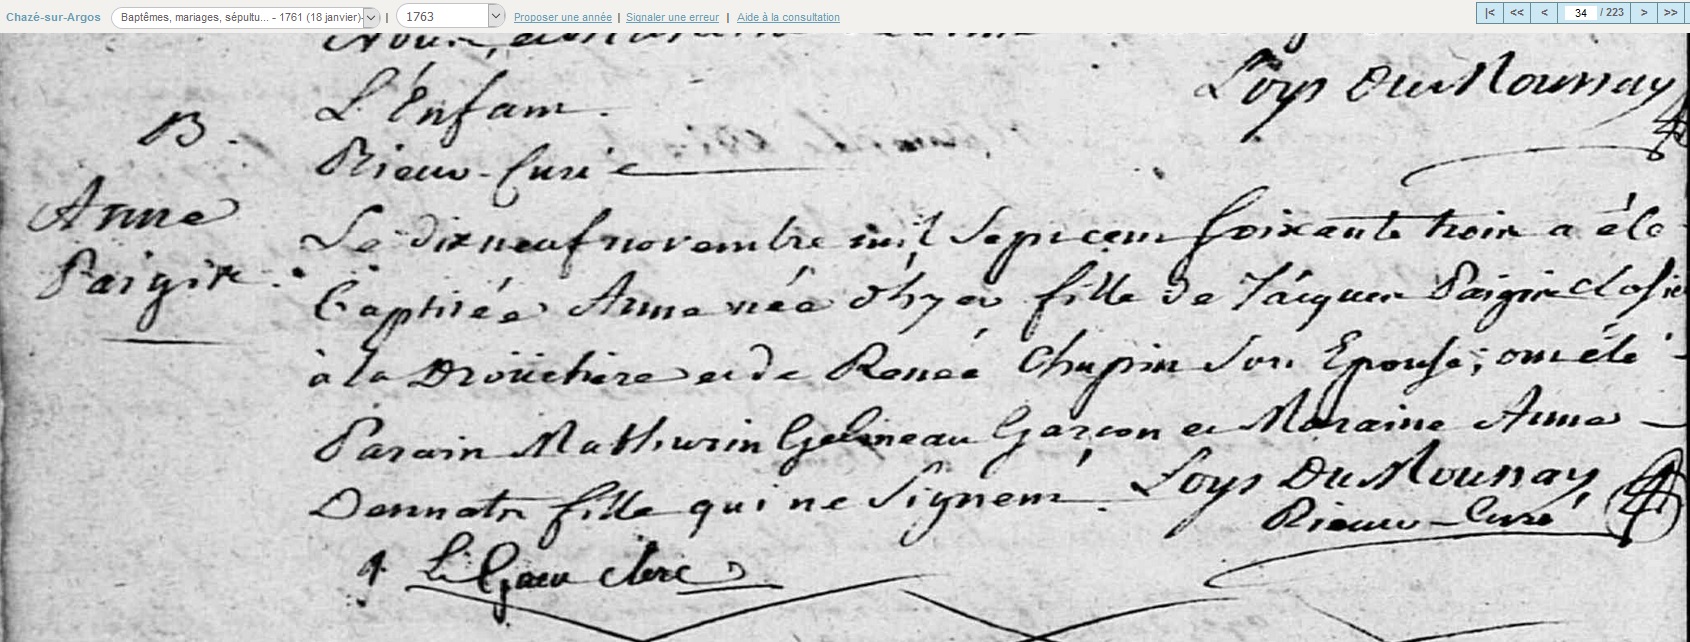 Chazé-sur-Argos Baptêmes, mariages, sépultu... - 1761 (18 janvier)- | 1763 Proposer une année | Signaler une erreur | Aide à la consultation |< << < 34 / 223 > >>
L'Enfant. Loys Du Mounay
B.
Rieux - Curé
Anne
Paigis
Le dixneuf novembre mil Sept cent soixante trois a été
baptisée Anne née d'hyer fille de Jacques Paigis closier
à la Drouchere et de Renée Chupin Son Epouse; ont été
Parain Mathurin Gelineau Garçon et Maraine Anne
fille qui ne Signent. Loys Du Mounay
Rieux - Curé
clerc